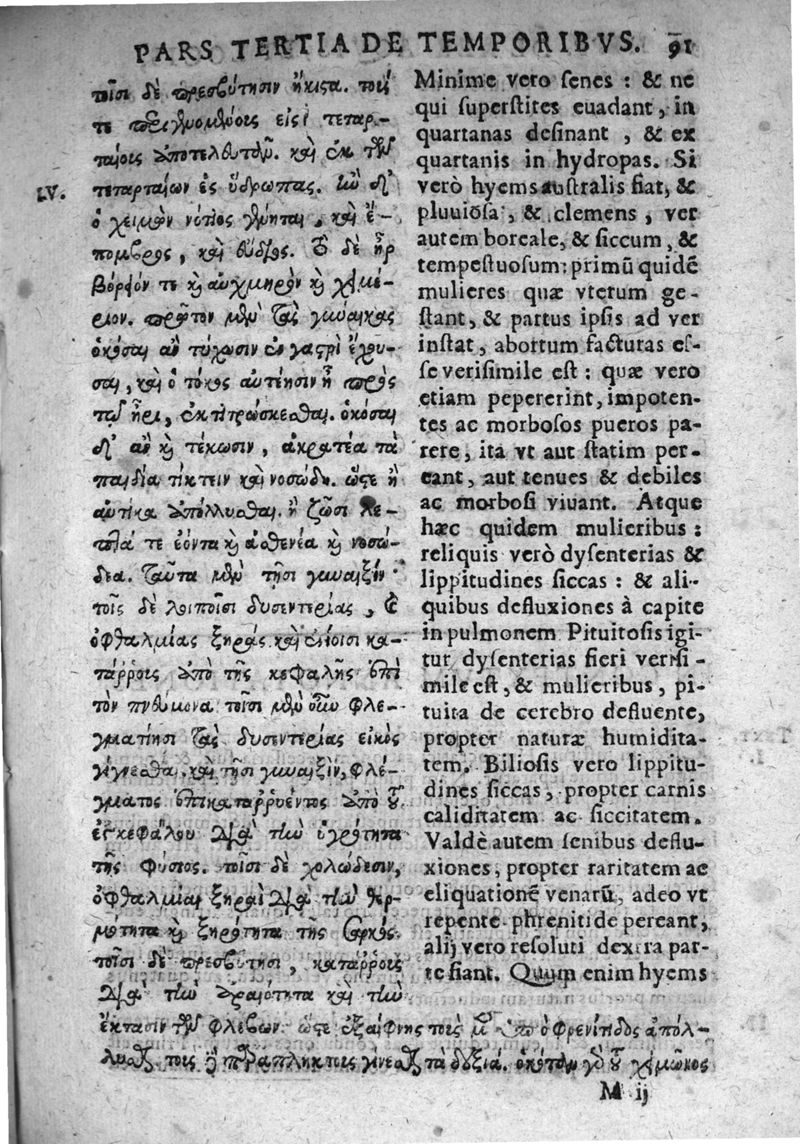 PARS TERTIA DE TEMPORIBVS. 91
τοῖσι δὲ πρεσβύτησιν ἥκιστα. τοῖς
τε περιγενομένοις εἰσὶ τεταρ-
ταίοις ἀποτελευτᾶν. καὶ ἐκ τῶν
LV. τεταρταίων ἐς ὕδρωπας. ἢν δ'
ὁ χειμὼν νότιος γένηται, καὶ ἔ-
πομβρος, καὶ εὔδιος. τὸ δὲ ἦρ
βόρειόν τε καὶ αὐχμηρὸν καὶ χειμέ-
ριον. πρῶτον μὲν τὰς γυναῖκας
ὁκόσαι ἂν τύχωσιν ἐν γαστρὶ ἔχου-
σαι, καὶ ὁ τόκος αὐτέησιν ἢ πρὸς
τῷ ἦρι, ἐκτιτρώσκεσθαι. ὁκόσαι
δ' ἂν καὶ τέκωσιν, ἀκρατέα τὰ
παιδία τίκτειν καὶ νοσώδη. ὥστε ἢ
αὐτίκα ἀπόλλυσθαι. ἢ ζῶσι λε-
πτά τε ἐόντα καὶ ἀσθενέα καὶ νοσώ-
δεα. ταῦτα μὲν τῇσι γυναιξίν
τοῖς δὲ λοιποῖσι δυσεντερίας, καὶ
ὀφθαλμίας ξηράς καὶ ἐνίοισι κα-
τάῤῥοις ἀπὸ τῆς κεφαλῆς ἐπὶ
τὸν πνεύμονα τοῖσι μὲν οὖν φλε-
γματίησι τὰς δυσεντερίας εἰκὸς
γίγνεσθαι. καὶ τῇσι γυναιξίν, φλέ-
γματος ἐπικαταῤῥυέντος ἀπὸ τοῦ
ἐγκεφάλου διὰ τὴν ὑγρότητα
τῆς φύσιος. τοῖσι δὲ χολώδεσιν,
ὀφθαλμίαι ξηραὶ διὰ τὴν θερ-
μότητα καὶ ξηρότητα τῆς σαρκός.
τοῖσι δὲ πρεσβύτησι, κατάῤῥοις
διὰ τὴν ἀραιότητα καὶ τὴν
Minime vero senes : & ne
qui superstites euadant, in
quartanas desinant , & ex
quartanis in hydropas. Si
verò hyems australis fiat, &
pluuiõsa, & clemens, ver
autem boreale, & siccum, &
tempestuosum: primũ quidẽ
mulieres quæ vterum ge-
stant, & partus ipsis ad ver
instat, abortum facturas es-
se verisimile est : quæ vero
etiam pepererint, impoten-
tes ac morbosos pueros pa-
rere, ita vt aut statim per-
eant, aut tenues & debiles
ac morbosi viuant. Atque
hæc quidem mulieribus :
reliquis verò dysenterias &
lippitudines siccas : & ali-
quibus defluxiones à capite
in pulmonem Pituitosis igi-
tur dysenterias fieri verisi-
mile est, & mulieribus, pi-
tuita de cerebro defluente,
propter naturæ humidita-
tem. Biliosis vero lippitu-
dines siccas, propter carnis
caliditatem ac siccitatem.
Valdè autem senibus deflu-
xiones, propter raritatem ac
eliquationẽ venarũ, adeo vt
repente phrenitide pereant,
alij vero resoluti dextra par-
te fiant. Quum enim hyems
ἔκτασιν τῶν φλεβῶν. ὥστε ἐξαίφνης τοὺς μὲν ὑπὸ φρενίτιδος ἀπόλ-
λυσθαι. τοὺς δὲ παραπλήκτους γίνεσθαι τὰ δεξιά. ὁκόταν γὰρ τοῦ χειμῶνος
M ij